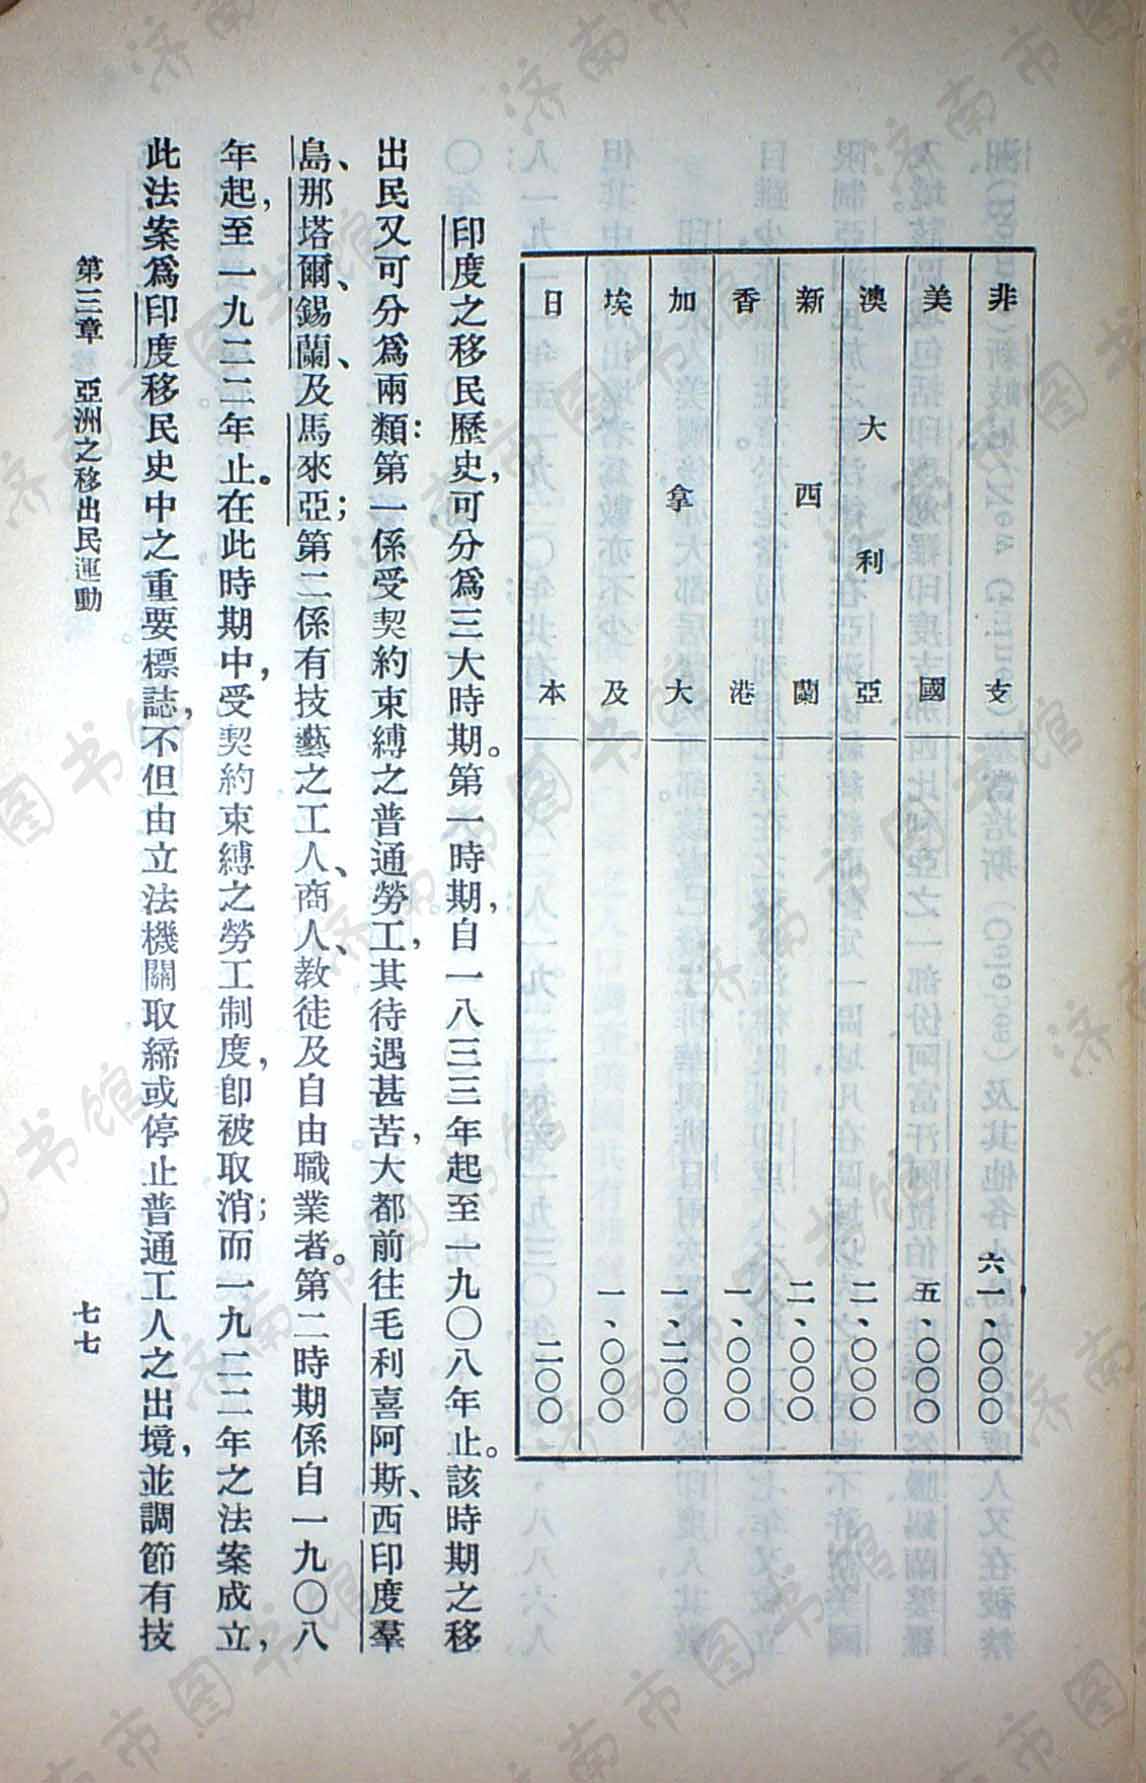 非支 六一、〇〇〇
美國 五、〇〇〇
澳大利亞 二、〇〇〇
新西蘭 二、〇〇〇
香港 一、〇〇〇
加拿大 一、二〇〇
埃及 一、〇〇〇
日本 二〇〇
印度之移民歷史，可分爲三大時期。第一時期，自一八三三年起至一九〇八年止。該時期之移
出民又可分爲兩類：第一係受契約束縛之普通勞工，其待遇甚苦，大都前往毛利喜阿斯、西印度羣
島、那塔爾、錫蘭、及馬來亞；第二係有技藝之工人、商人、教徒及自由職業者。第二時期係自一九〇八
年起，至一九二二年止。在此時期中，受契約束縛之勞工制度，卽被取消；而一九二二年之法案成立，
此法案爲印度移民史中之重要標誌，不但由立法機關取締或停止普通工人之出境，並調節有技
第三章 亞洲之移出民運動
七七
济南市图书馆